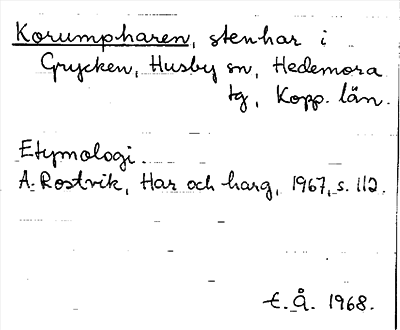 Korumpharen, stenhar i
Grycken, Husby sn, Hedemora
tg, Kopp. län.
Etymologi.
A. Rostvik, Har och harg, 1967, s. 112.
E. Å. 1968.